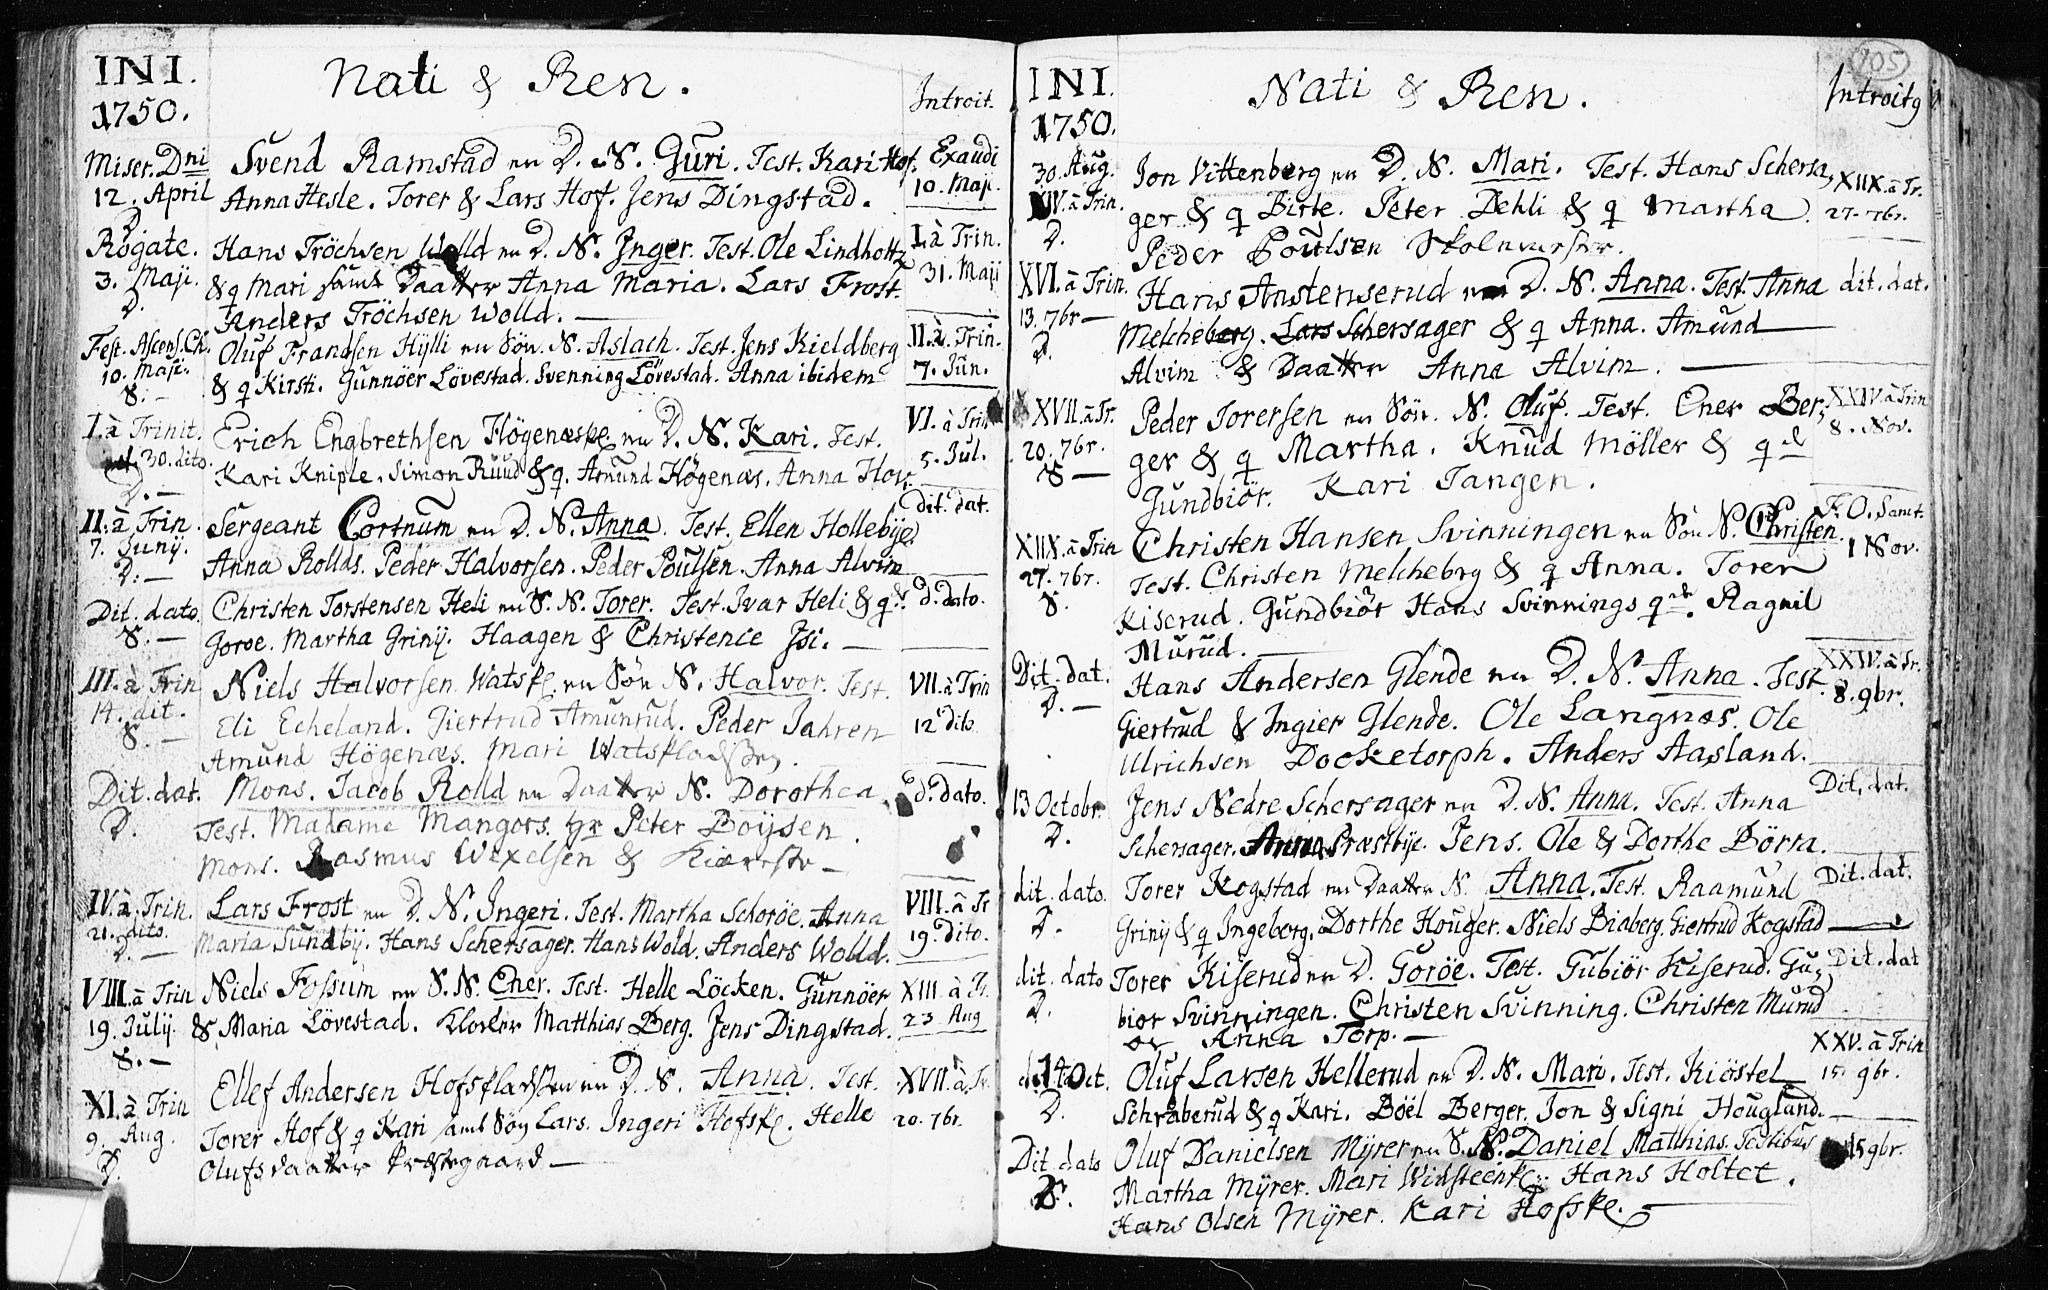 INI.
1750.
Nati & Ren.
Introit.
Miser. Dni
12. April
D.
Svend Ramstad en D. N. Guri. Test. Kari Hof.
Anna Hesle. Torer & Lars Hof. Jens Dingstad.
Exaudi
10. Maji.
Rogate.
3. Maji.
D.
Hans Tröchsen Wolld en D. N. Inger. Test. Ole Lindholtz
& q Mari samt Daatter Anna Maria. Lars Frost.
Anders Tröchsen Wolld.
I. à Trin.
31. Maji
Fest. Ascens. Ch.
10. Maji.
S.
Oluf Frandsen Hÿlli en Sön. N. Aslach. Test. Jens Kieldberg
& q Kirsti. Gunnöer Lövestad. Svenning Lövestad. Anna ibidem
II. à Trin.
7. Jun.
I. à Trinit.
30. dito.
D.
Erich Engbrethsen Högenæske en D. N. Kari. Test.
Kari Kniple. Simon Ruud & q. Amund Högenæs. Anna Hov.
VI. à Trin
5. Jul.
II. à Trin.
7. Junij.
D.
Sergeant Cortnum en D. N. Anna. Test. Ellen Hollebÿe
Anna Rollds. Peder Halvorsen. Peder Poulsen. Anna Alvim
dit. dat.
Dit. dato
S.
Christen Torstensen Heli en S. N. Torer. Test. Ivar Heli & q
Goroe. Martha Grinÿ. Haagen & Christence Isi.
d. dato.
III. à Trin
14. dit.
S.
Niels Halvorsen Watske en Sön N. Halvor. Test.
Eli Echeland. Giertrud Amunrud. Peder Jahren
Amund Högenæs. Mari Watspladsen.
VII. à Trin
12 dito
Dit. dat.
D.
Mons. Jacob Rolld en Daatter N. Dorothea
Test. Madame Mangors. Hr Peter Boÿsen.
Mons. Rasmus Wexelsen & Kiæreste
d. dato.
IV. à Trin.
21. dito
D.
Lars Frost en D. N. Ingeri. Test. Martha Schoröe. Anna
Maria Sundbÿ. Hans Schersager. Hans Wold. Anders Wolld.
VIII. à Tr
19. dito.
VIII. à Trin
19. Julÿ.
S.
Niels Fossum en S. N. Ener. Test. Helle Löcken. Gunnöer
& Maria Lövestad. Klocker Matthias Berg. Jens Dingstad.
XIII. à Tr.
23. Aug
XI. à Trin
9. Aug.
D.
Ellef Andersen Hofspladsen en D. N. Anna. Test.
Torer Hof & q Kari samt Sön Lars. Ingeri Hofske. Helle
Olufsdaatter Prestegaard
XVII. à Tr.
20. 7br.
INI.
1750.
Nati & Ren.
105
Introitq
30. Aug.
XIV. à Trin.
D.
Jon Vittenberg en D. N. Mari. Test. Hans Schersa,
ger & q Birte. Peter Dehli & q Martha.
Peder Poulsen Skolemester.
XIIX. à Tr.
27. 7br.
XVI. à Trin.
13. 7br
D.
Hans Anstenserud en D. N. Anna. Test. Anna
Melcheberg. Lars Schersager & q Anna. Amund
Alvim & Daatter Anna Alvim.
dit. dat.
XVII. à Tr.
20. 7br.
S
Peder Torersen en Sön. N. Oluf. Test. Ener Ber,
ger & q Martha. Knud Möller & q
Gundbiör. Kari Tangen.
XXIV. à Trin
8. Nov.
XIIX. à Trin
27. 7br.
S.
Christen Hansen Svinningen en Sön N. Christen.
Test. Christen Melchebrg & q Anna. Torer
Kiserud. Gundbiör Hans Svinnings q. Ragnil
Murud.
F. O. Sanct.
1 Nov.
Dit. dat.
D.
Hans Andersen Glende en D. N. Anna. Test.
Giertrud & Ingier Glende. Ole Langnæs. Ole
Ulrichsen Docketorph. Anders Aasland.
XXIV. à Tr.
8. 9br.
13 Octobr.
D.
Jens Nedre Schersager en D. N. Anna. Test. Anna
Schersager. Anna Præstbÿe. Jens. Ole & Dorthe Börra.
Dit. dat.
dit. dato.
D.
Torer Kogstad en Daatter N. Anna. Test. Raamund
Grinÿ & q Ingeborg. Dorthe Houger. Niels Biaberg. Giertrud Kogstad
Dit. dat.
dit. dato
D.
Torer Kiserud en D. Goröe. Test. Gubiör Kiserud. Gu,
biör Svinningen. Christen Svinning. Christen Murud
oc Anna Torp.
Dit. dat
14 Oct.
D.
Oluf Larsen Hellerud en D. N. Mari. Test. Kiöstel
Schraberud & q Kari. Böel Berger. Jon & Signi Houglund.
XXV. à Trin
15. 9br.
Dit. dato
S.
Oluf Danielsen Mÿrer en S. N. Daniel Matthias. Testibus
Martha Mÿrer. Mari Windsteenke. Hans Holtet.
Hans Olsen Mÿrer. Kari Hofske.
15 9br.